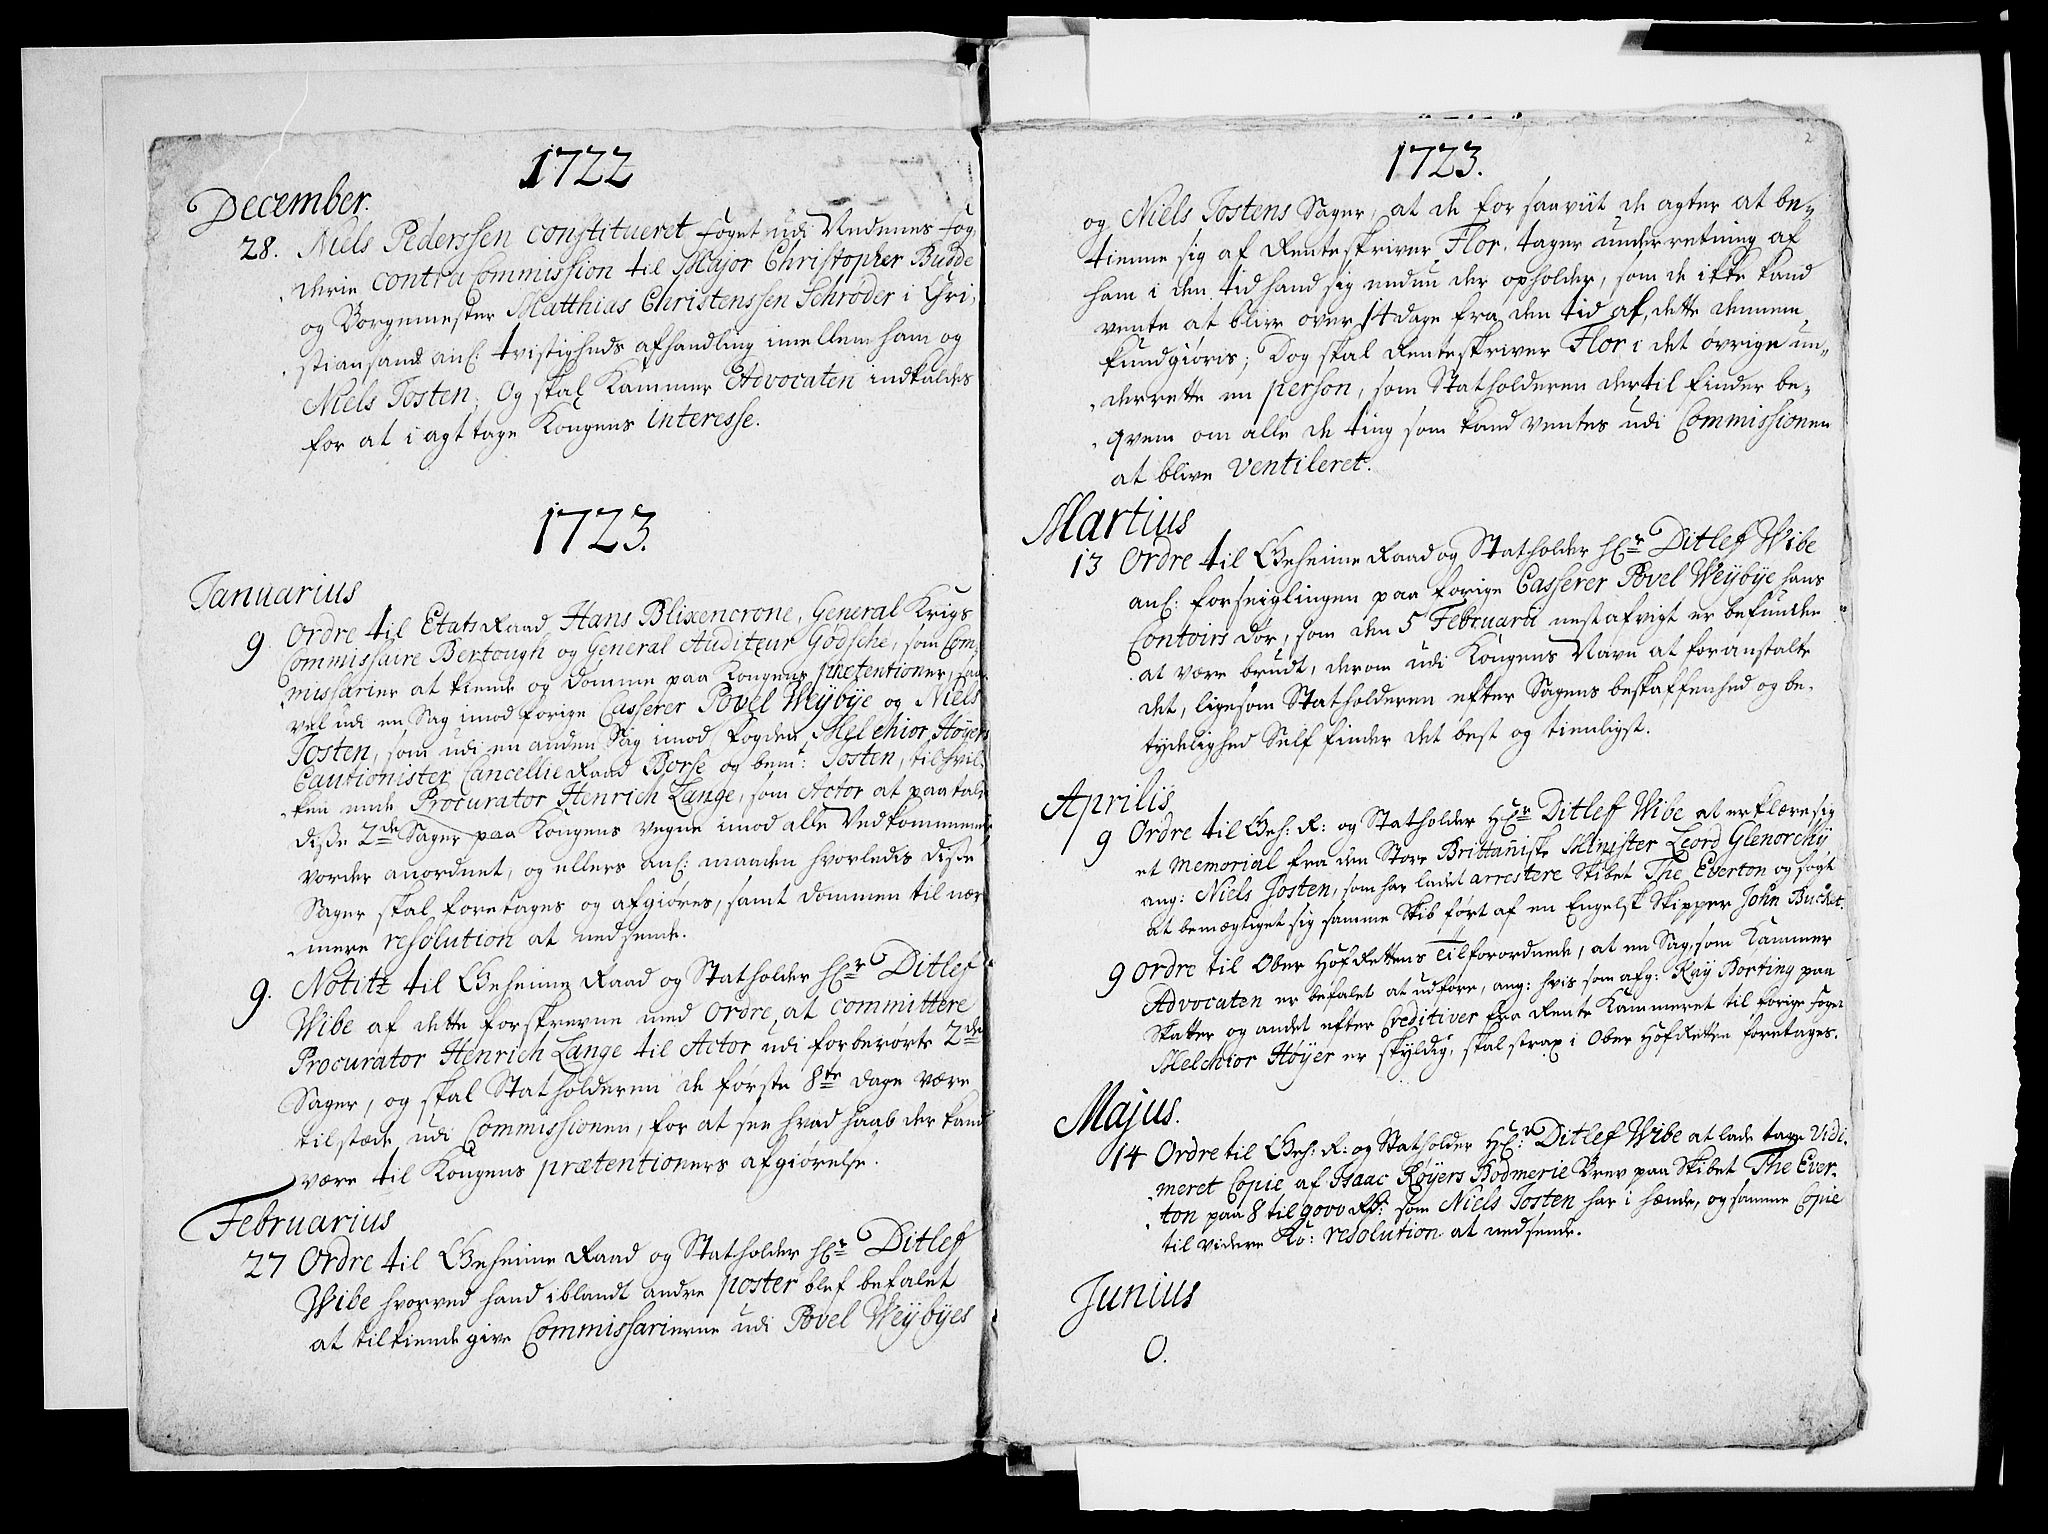 1722
December.
28. Niels Pederssen constitueret Foget udi Nedenes Fog
derie contra Commission til Major Christopher Budde
og Borgemester Matthias Christenssen Schrøder i Chri,
stiansand anl: tvistigheds afhandling imellem ham og
Niels Tosten; Og skal Kammer Advocaten indkaldes
for at i agt tage Kongens interesse.
1723.
Januarius
9. Ordre til Etats Raad Hans Blixencrone, General Krigs
Commissaire Bertough og General Auditeur Gödsche, som Com,
missarier at kiende og dømme paa Kongens prætentioner, saa
vel udi en Sag imod forige Casserer Povel Weÿbÿe og Niels
Tosten, som udi en anden Sag imod Fogden Melchior Høÿers
Cautionister Cancellie Raad Borse og bemt: Tosten, til hvil,
ken ende Procurator Henrich Lange, som Actor at paatale
disse 2de Sager paa Kongens vegne imod alle Vedkommende
vorder anordnet, og ellers anl: maaden hvorledis disse
Sager skal foretages og afgiøres, samt dommen til nær
mere resolution at nedsende.
9. Notitz til Geheime Raad og Statholder Hr Ditlef
Wibe af dette forskrevne med ordre, at committere
Procurator Henrich Lange til Actor udi forberørte 2de
Sager, og skal Statholderen de første 8te dage være
tilstæde udi Commissionen, for at see hvad haab der kand
være til Kongens prætentioners afgiørelse.
Februarius
27 Ordre til Geheime Raad og Statholder Hr Ditlef
Wibe hvorved hand iblandt andre poster blef befalet
at tilkiende give Commissarierne udi Povel Weÿbÿes
2
1723.
og Niels Tostens Sager, at de for saavit de agter at be,
tiene sig af Renteskriver Flor, tager underretning af
ham i den tid hand sig endnu der opholder, som de ikke kand
vente at blive over 14 dage fra den tid af, dette dennem
kundgiøris; Dog skal Renteskriver Flor i det øvrige un,
derrette en person, som Statholderen dertil finder be,
qvem om alle de ting som kand ventes udi Commissionen
at blive ventileret.
Martius
13 Ordre til Geheime Raad og Statholder Hr Ditlef Wibe
anl: forseiglingen paa forige Casserer Povel Weÿbÿe hans
Contoirs dør, som den 5 Februarii nest afvigt er befunden
at være brudt, derom udi Kongens Navn at foranstalte
det, ligesom Statholderen efter Sagens beskaffenhed og be,
tydelighed Self finder det best og tienligst.
Aprilis
9 Ordre til Geh: R: og Statholder Hr Ditlef Wibe at erklære sig
et memorial fra den Store Brittaniske Minister Leord Glenorchÿ
ang: Niels Josten, som har ladet arrestere Skibet The Everton og søgt
at bemægtiget sig samme Skib ført af en Engelsk Skipper John Bucket.
9 Ordre til Ober Hof Rettens Tilforordnede, at en Sag, som Kammer
Advocaten er befalet at udføre, ang: hvis som afg: Kaÿ Borting paa
Skatter og andet efter Creditiver fra Rente Kammeret til forige Foget
Melchior Høÿer er skÿldig, skal strax i Ober Hof Retten foretages.
Majus.
14 Ordre til Geh: R: og Statholder Hr: Ditlef Wibe at lade tage Vidi,
meret Copie af Isaac Roÿers Bodmerie Brev paa Skibet The Ever,
ton paa 8 til 9000 Rd: som Niels Tosten har i hænde, og samme Copie
til videre Ko: resolution at nedsende.
Junius
O.